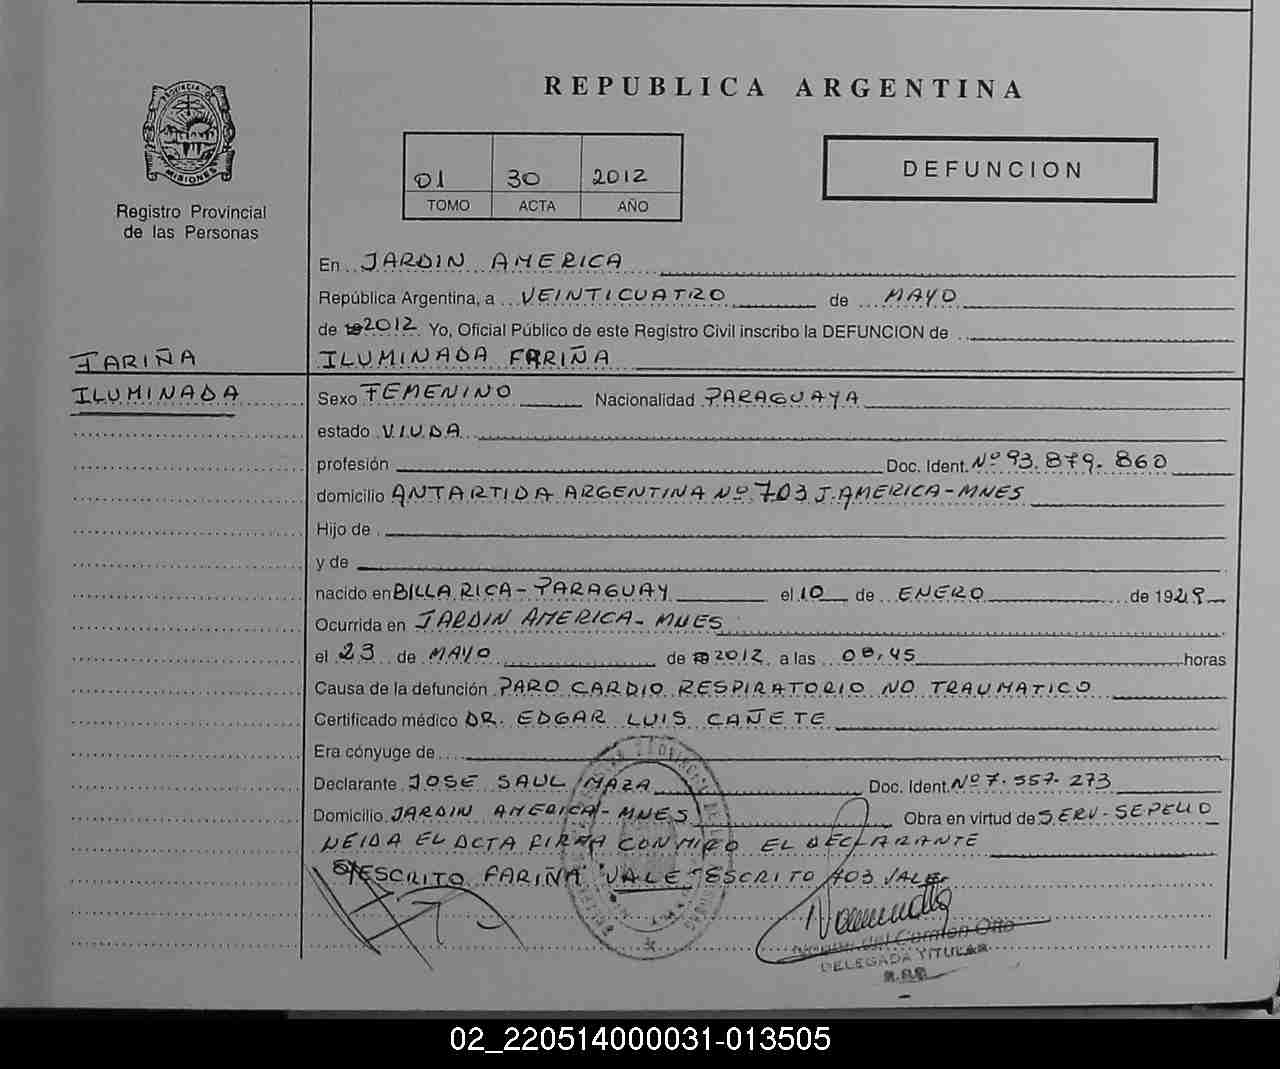 REPUBLICA ARGENTINA
PROVINCIA DE
MISIONES
Registro Provincial
de las Personas
01 30 2012
TOMO ACTA AÑO
DEFUNCION
En JARDIN AMERICA
República Argentina, a VEINTICUATRO de MAYO
de 2012 Yo, Oficial Público de este Registro Civil inscribo la DEFUNCION de
FARIÑA
ILUMINADA FARIÑA
ILUMINADA
Sexo FEMENINO Nacionalidad PARAGUAYA
estado VIUDA
profesión Doc. Ident. Nº 93.879.860
domicilio ANTARTIDA ARGENTINA Nº 703 J. AMERICA-MNES
Hijo de
y de
nacido en BILLA RICA-PARAGUAY el 10 de ENERO de 1929
Ocurrida en JARDIN AMERICA-MNES
el 23 de MAYO de 2012 a las 08,45 horas
Causa de la defunción PARO CARDIO RESPIRATORIO NO TRAUMATICO
Certificado médico DR. EDGAR LUIS CAÑETE
Era cónyuge de
Declarante JOSE SAUL MAZA Doc. Ident. Nº 7.557.273
Domicilio JARDIN AMERICA-MNES Obra en virtud de SERV-SEPELIO
LEIDA EL ACTA FIRMA CONMIGO EL DECLARANTE
S/ESCRITO FARIÑA "VALE" ESCRITO 703 VALE
DELEGADA TITULAR
02_220514000031-013505